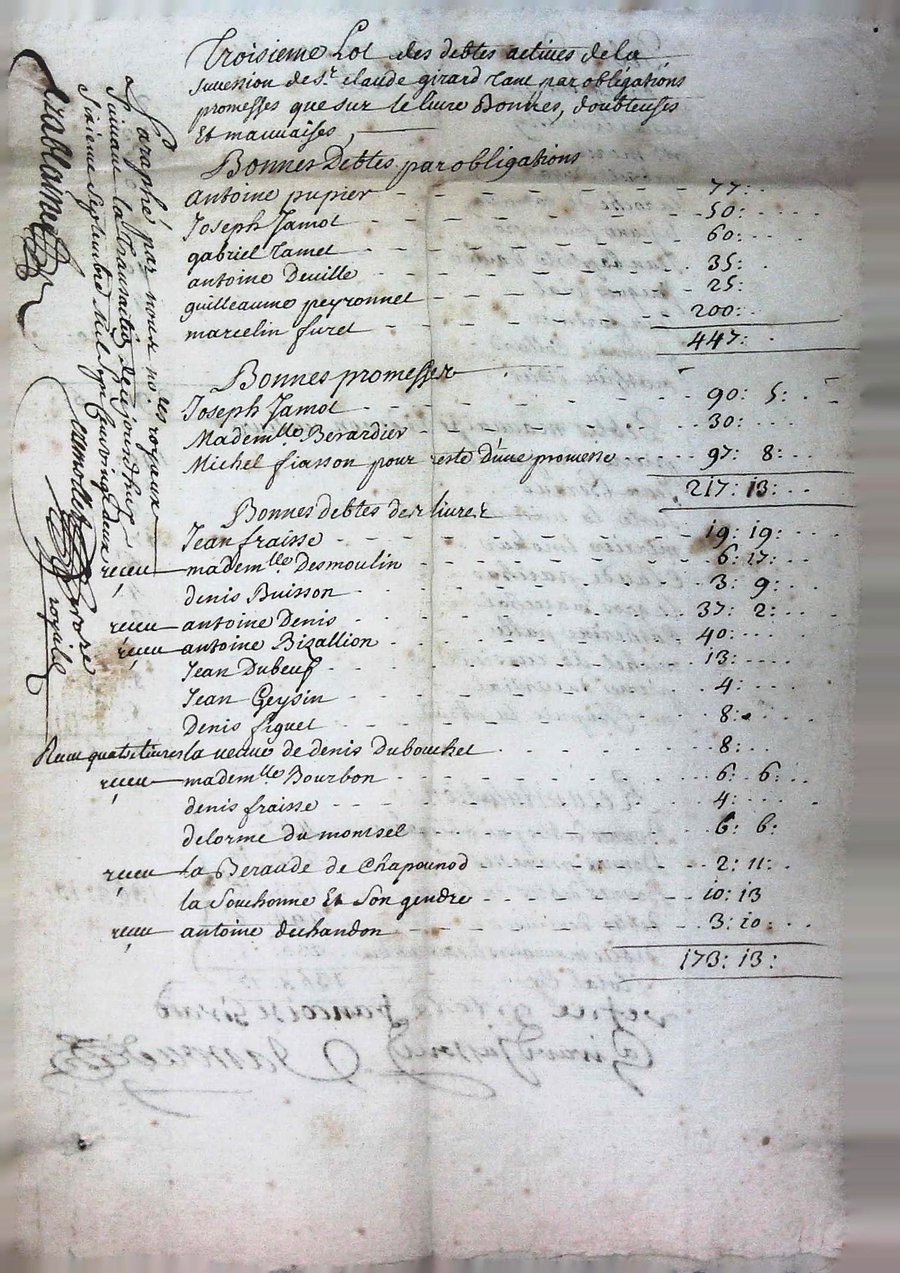 Troisieme Lot des debtes actives de la
succession de Sr. claude girard tant par obligations
promesses que sur le livre Bonnes, doubteuses
Et mauvaises,
Bonnes Debtes par obligations
antoine pupier 77:
Joseph Jamot 50:
gabriel Tamet 60:
antoine Deville 35:
guilleaume peyronnet 25:
marcelin furet 200:
447:
Bonnes promesses
Joseph Jamot 90: 5:
Mademlle Berardier 30:
Michel fiasson pour reste d'une promesse 97: 8:
217: 13:
Bonnes debtes des livres
Jean fraisse 19: 19:
receu mademlle Desmoulin 6: 17:
denis Buisson 3: 9:
receu antoine Denis 37: 2:
receu antoine Bisallion 40:
Jean Dubeuf 13:
Jean Geysin 4:
Denis figuet 8:
Receu quatre livres la veuve de denis dubouchet 8:
receu mademlle Bourbon 6: 6:
denis fraisse 4:
delorme du montsel 6: 6:
receu la Beraude de Chapounod 2: 11:
la Souchonne Et Son gendre 10: 13
receu antoine dechandon 3: 10:
173: 13:
Paraphé par nous nores royaux
Suivant la Transaction de ce jourd'huy
Sixieme Septembre Mil Sept Cent vingt deux
royale